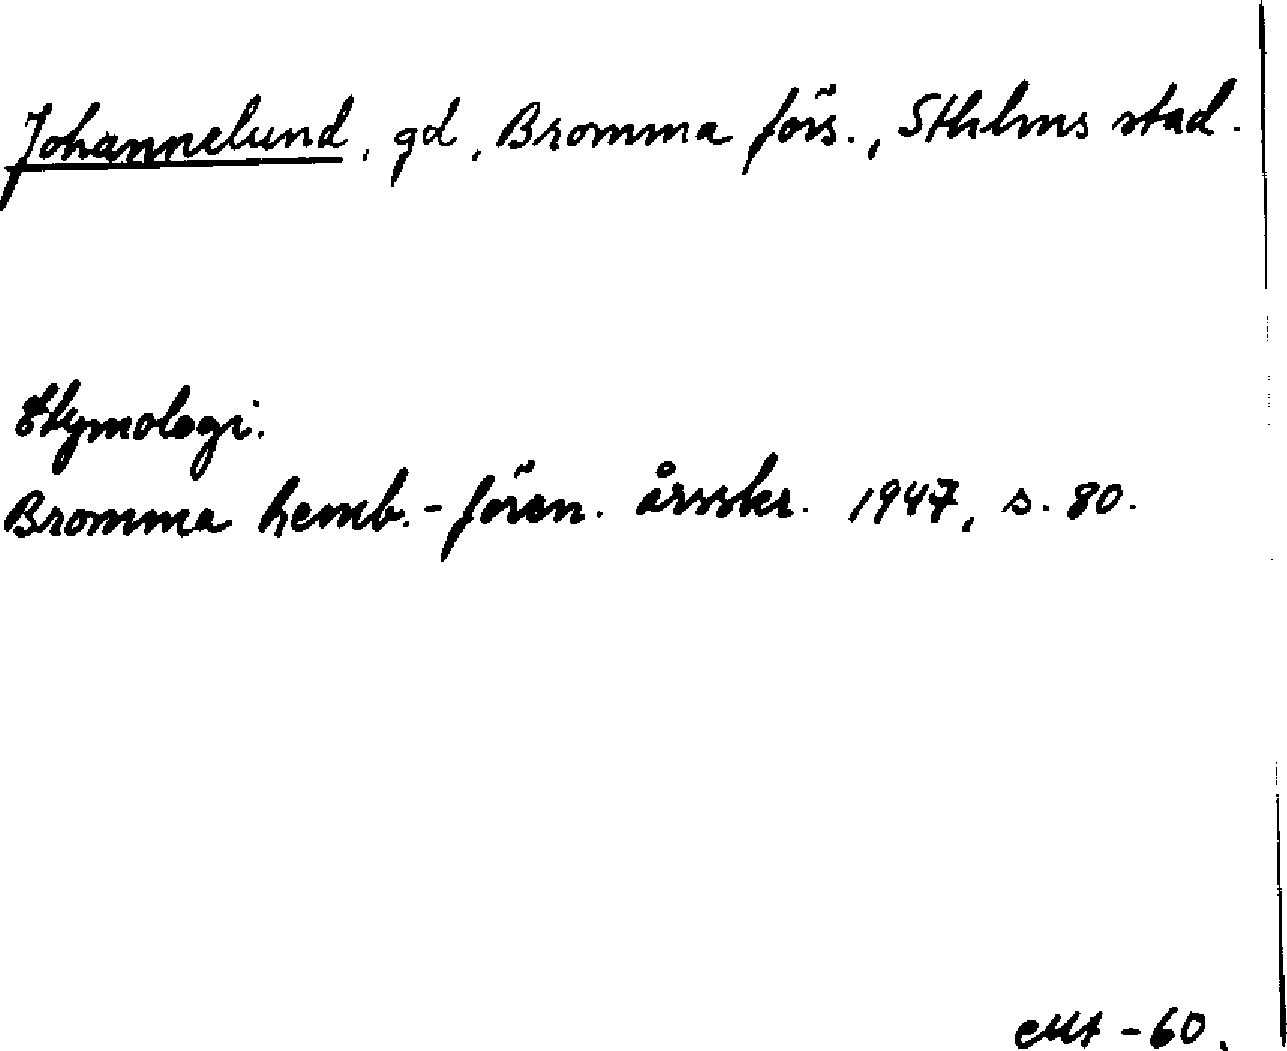 Johannelund, gd, Bromma förs., Sthlms stad.
Etymologi.
Bromma hemb.-fören. årsskr. 1947, s. 80.
-60.